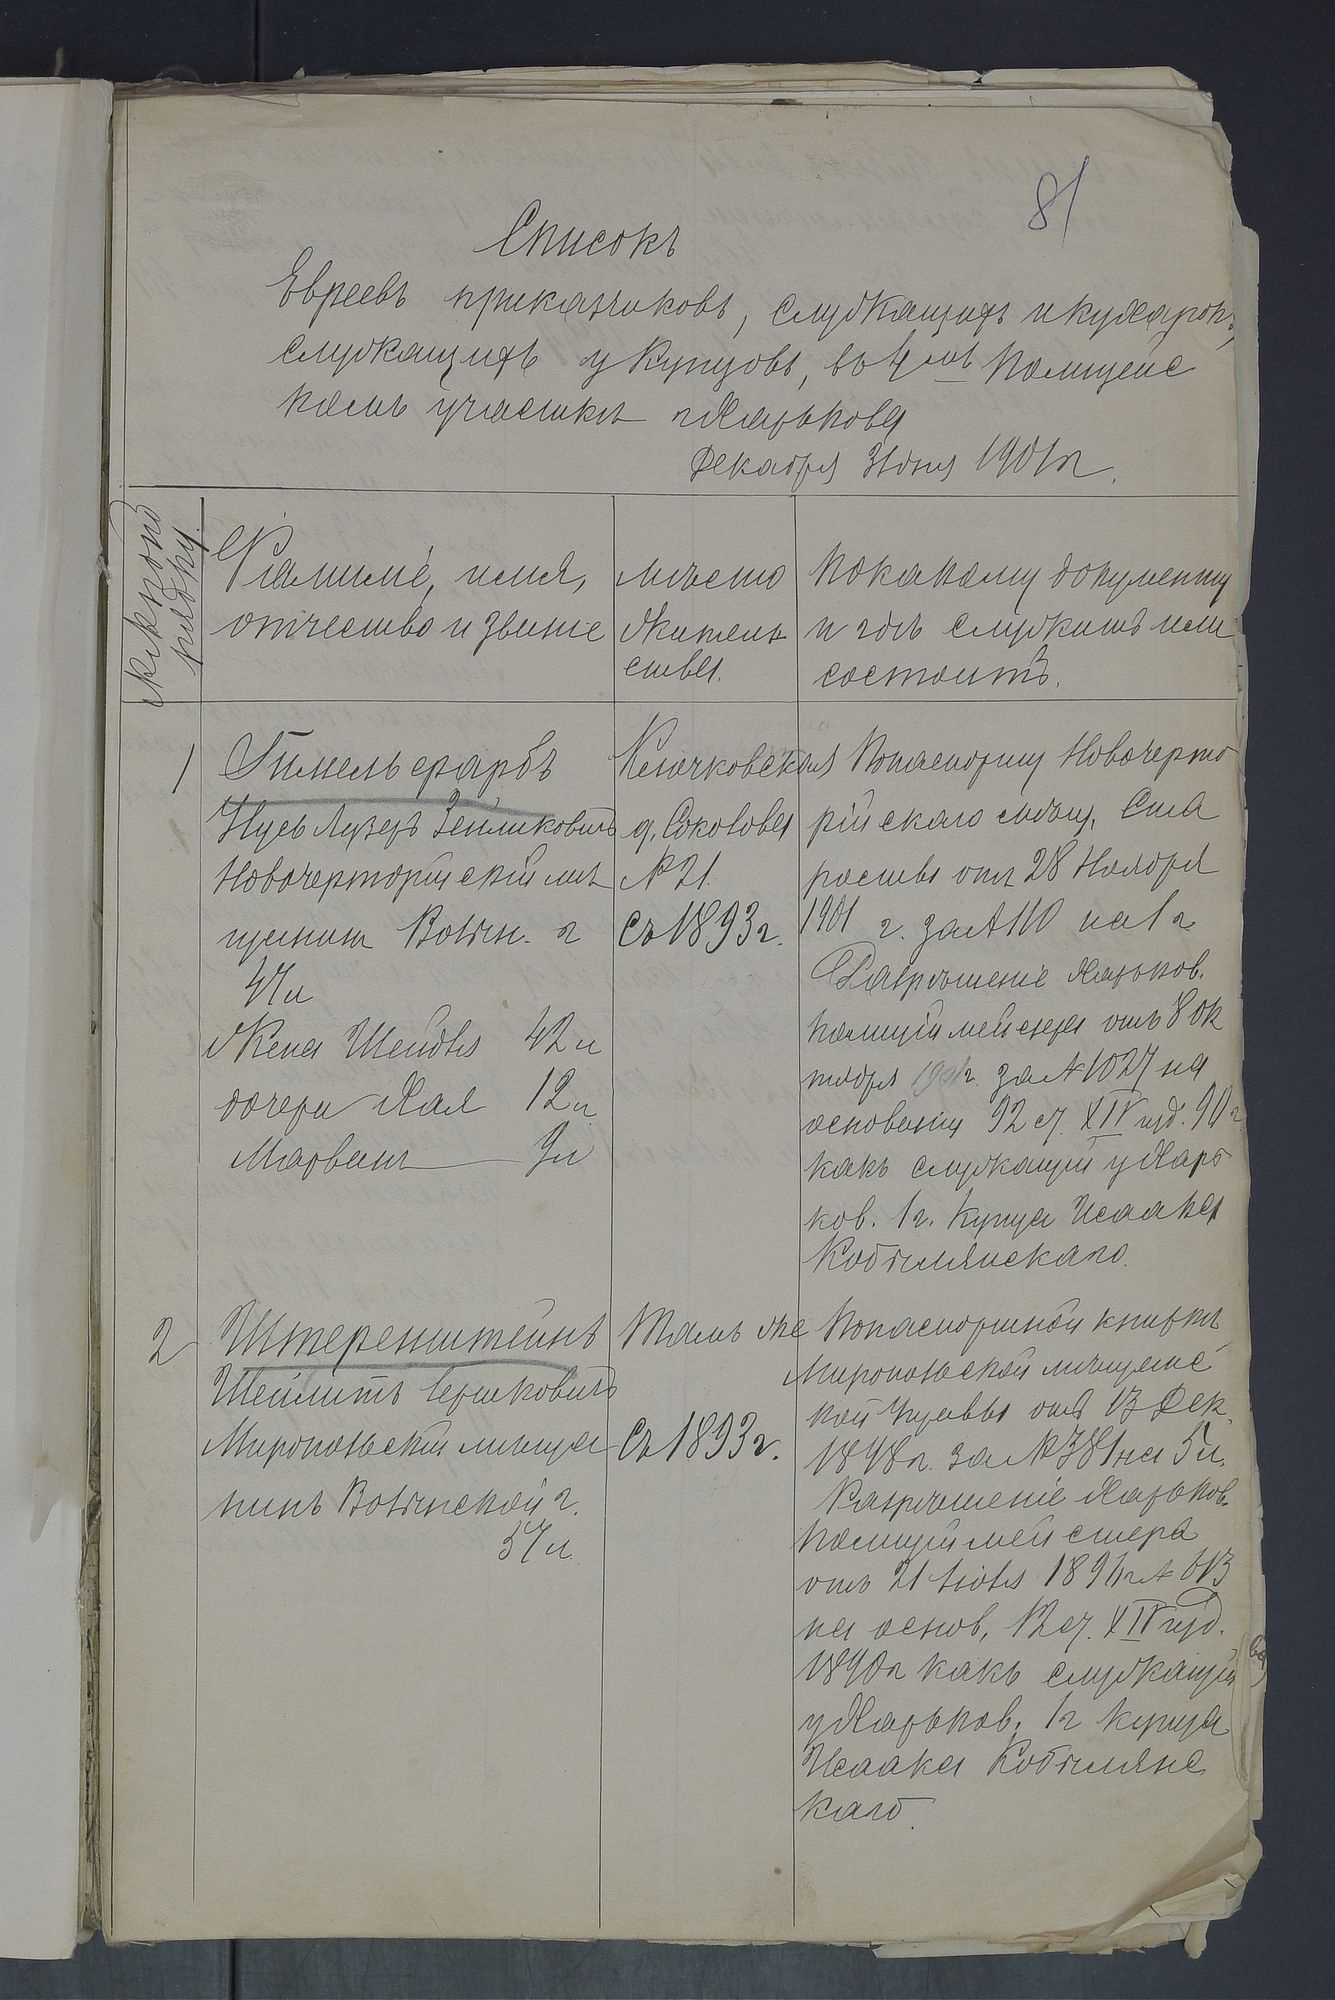 81
Списокъ
Евреевъ прикащиковъ, служащихъ и кухарокъ,
служащихъ у Купцовъ, въ 4мъ Полицейс
комъ участкѣ г Харькова
Декабря 31 дня 1901 г.
№№ по по
рядку.
Фамилiе, имя,
отчество и званiе
мѣсто
жительс
тва.
По какому документу
и гдѣ служитъ или
состоитъ.
1
Гимельфарбъ
Нусь Лузеръ Зейликовичъ
Новочерторiйскiй мѣ
щанинъ Волын. г
47 л
Жена Шейдва 42 л
дочери Хая 12 л
9 л
Клочковская
д. Соколова
№ 21
Съ 1893 г.
По паспорту Новочерто
рiйскаго мѣщ. Ста
росты отъ 28 Ноября
1901 г. за № 110 на 1 г
Разрѣшенiе Харьков.
Полицiймейстера отъ 8 ок
тября 1901 г. за № 1027 на
основанiи 92 ст. XIV изд. 90 г
какъ служащiй у Харь
ков. 1 г. Купца Исаака
Кобылянскаго.
2
Штеренштейнъ
Шейлитъ Гершковичъ
Миропольскiй мѣща
нинъ Волынской г.
57 л
Тамъ же
Съ 1893 г.
По паспортной книжкѣ
Миропольской мѣщанс
кой Управы отъ 13 Дек.
1898 г. за № 381 на 5 л.
Разрѣшенiе Харьков.
Полицiймейстера
отъ 21 Iюля 189 г №
на основ. 12 ст. XIV изд.
1890 г какъ служащiй
у Харьков. 1 г Купца
Исаака Кобылянс
каго.